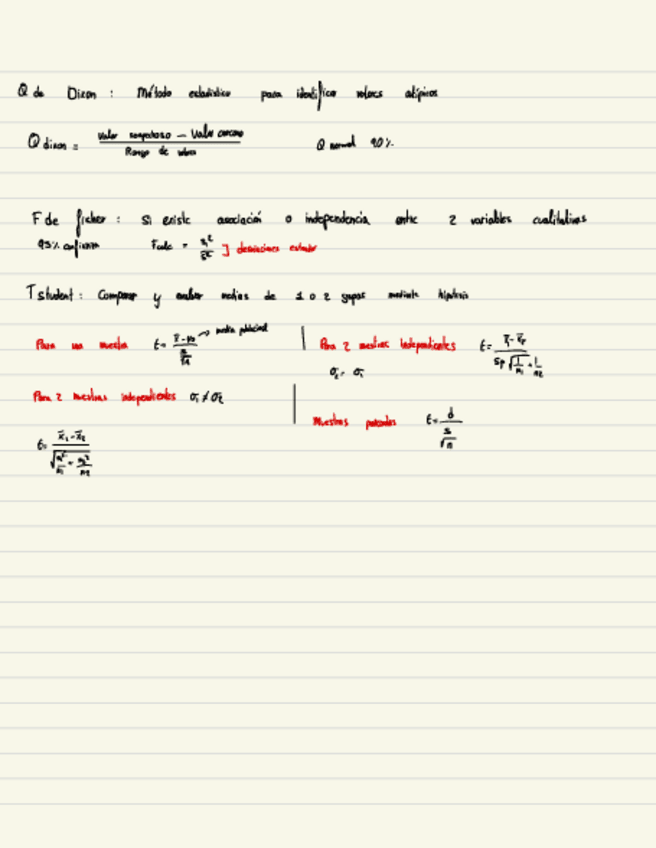 Q de Dixon : Método estadístico para identificar valores atípicos
Q dixon = Valor sospechoso - Valor cercano / Rango de valores
Q normal 90%
F de fisher : Si existe asociación o independencia entre 2 variables cualitativas
95% confianza Fcalc = s₁² / s₂² ] desviaciones estandar
T student : Comparar y evaluar medias de 1 o 2 grupos mediante hipótesis
Para una muestra t = x̄ - μ₀ / s/√n → media poblacional
Para 2 muestras independientes t = / Sp √ 1/n₁ + 1/n₂
Para 2 muestras independientes σ₁ ≠ σ₂
Muestras pareadas t = d / s/√n
t = x̄₁ - x̄₂ / √ s₁²/n₁ + s₂²/n₂